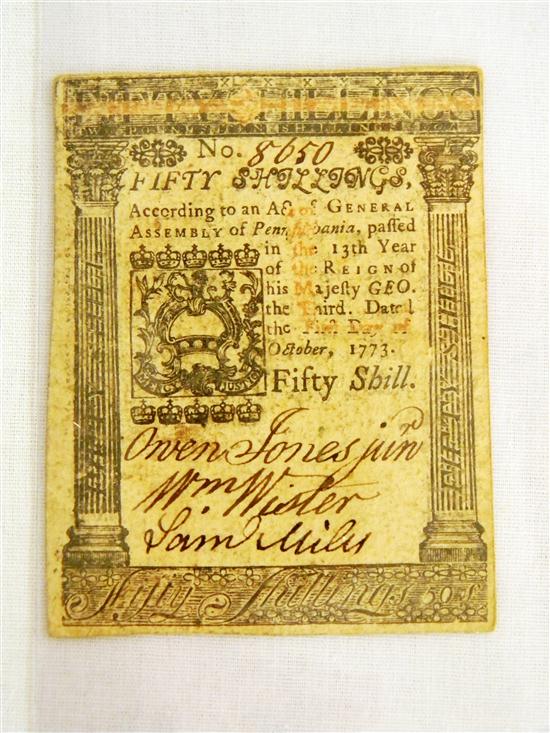 FIFTY SHILLINGS
No. 8650
FIFTY SHILLINGS,
According to an Act of GENERAL
ASSEMBLY of Pennsylvania, paſſed
in the 13th Year
of the REIGN of
his Majeſty GEO.
the Third. Dated
the Firſt Day of
October, 1773.
Fifty Shill.
MERCY JUSTICE
Owen Jones junr
Wm Wister
Saml Miles
Fifty Shillings 50s
FIFTY SHILL